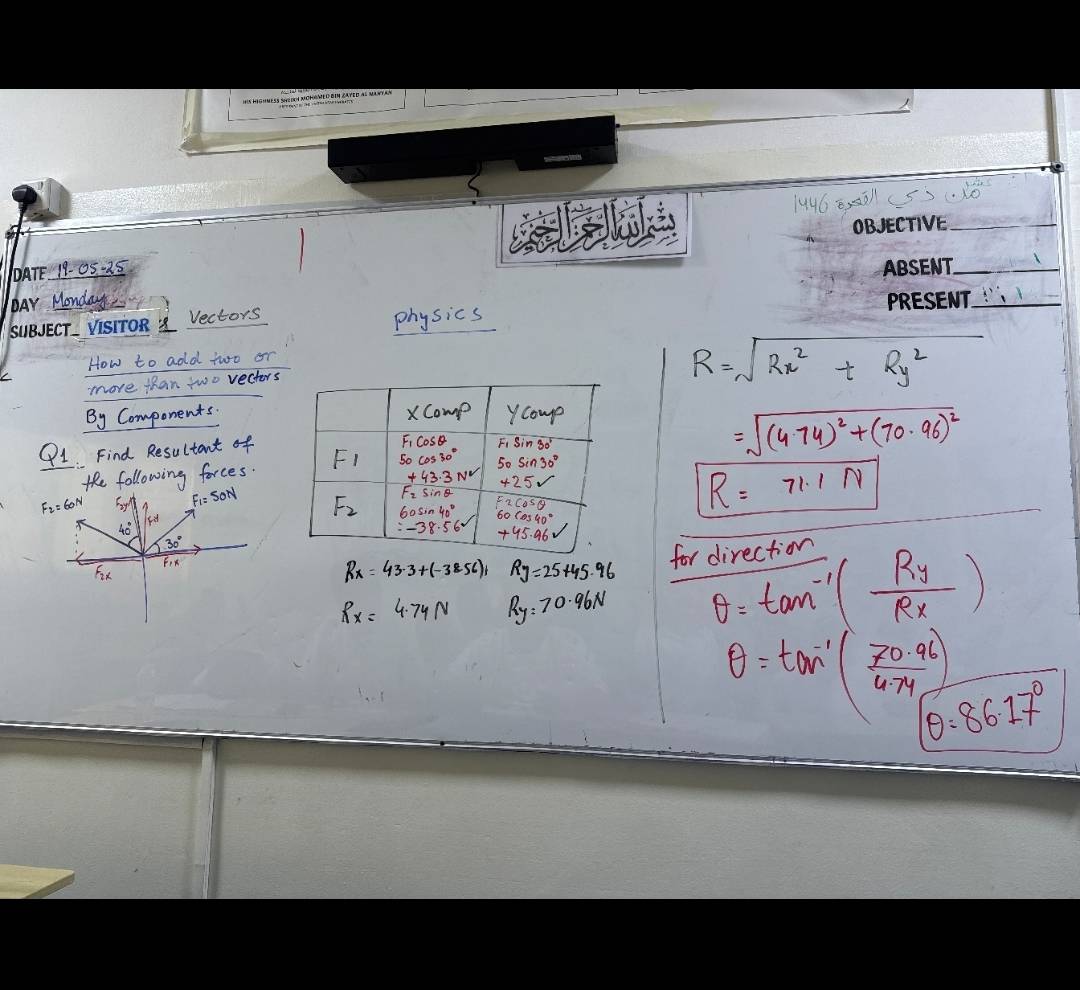 HIS HIGHNESS SHEIKH MOHAMED BIN ZAYED AL NAHYAN
بسم الله الرحمن الرحيم
ذي القعدة 1446
OBJECTIVE
ABSENT
PRESENT
DATE 19-05-25
DAY Monday
SUBJECT VISITOR Vectors
How to add two or
more than two vectors
By Components.
Q1. Find Resultant of
the following forces.
F2=60N
F2y
F1y
F1=50N
40°
30°
F2x
F1x
physics
X Comp
Y Comp
F1
F1 Cosθ
50 Cos30°
+43.3 N✓
F1 Sin 30°
50 Sin30°
+25✓
F2
F2 Sinθ
60sin 40°
=-38.56✓
F2Cosθ
60 Cos40°
+45.96✓
Rx = 43.3+(-38.56)
Ry=25+45.96
Rx = 4.74 N
Ry=70.96N
R=√Rx² + Ry²
=√(4.74)²+(70.96)²
R = 71.1 N
for direction
θ= tan⁻¹(Ry/Rx)
θ = tan⁻¹(70.96/4.74)
θ=86.17°